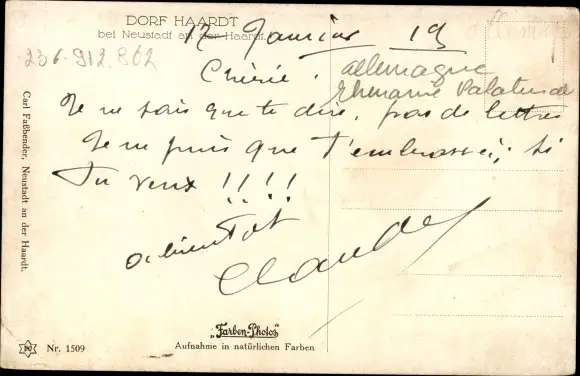 DORF HAARDT
bei Neustadt an der Haardt.
12 Janvier 19
236.912.862
Allemagne
Chérie,
Allemagne
Rhénanie Palatinat
Je ne sais que te dire, pas de lettres
Je ne puis que t'embrasser, si
Tu veux !!!!
à bientôt
Claude
Carl Faßbender, Neustadt an der Haardt.
"Farben-Photos"
Aufnahme in natürlichen Farben
Nr. 1509